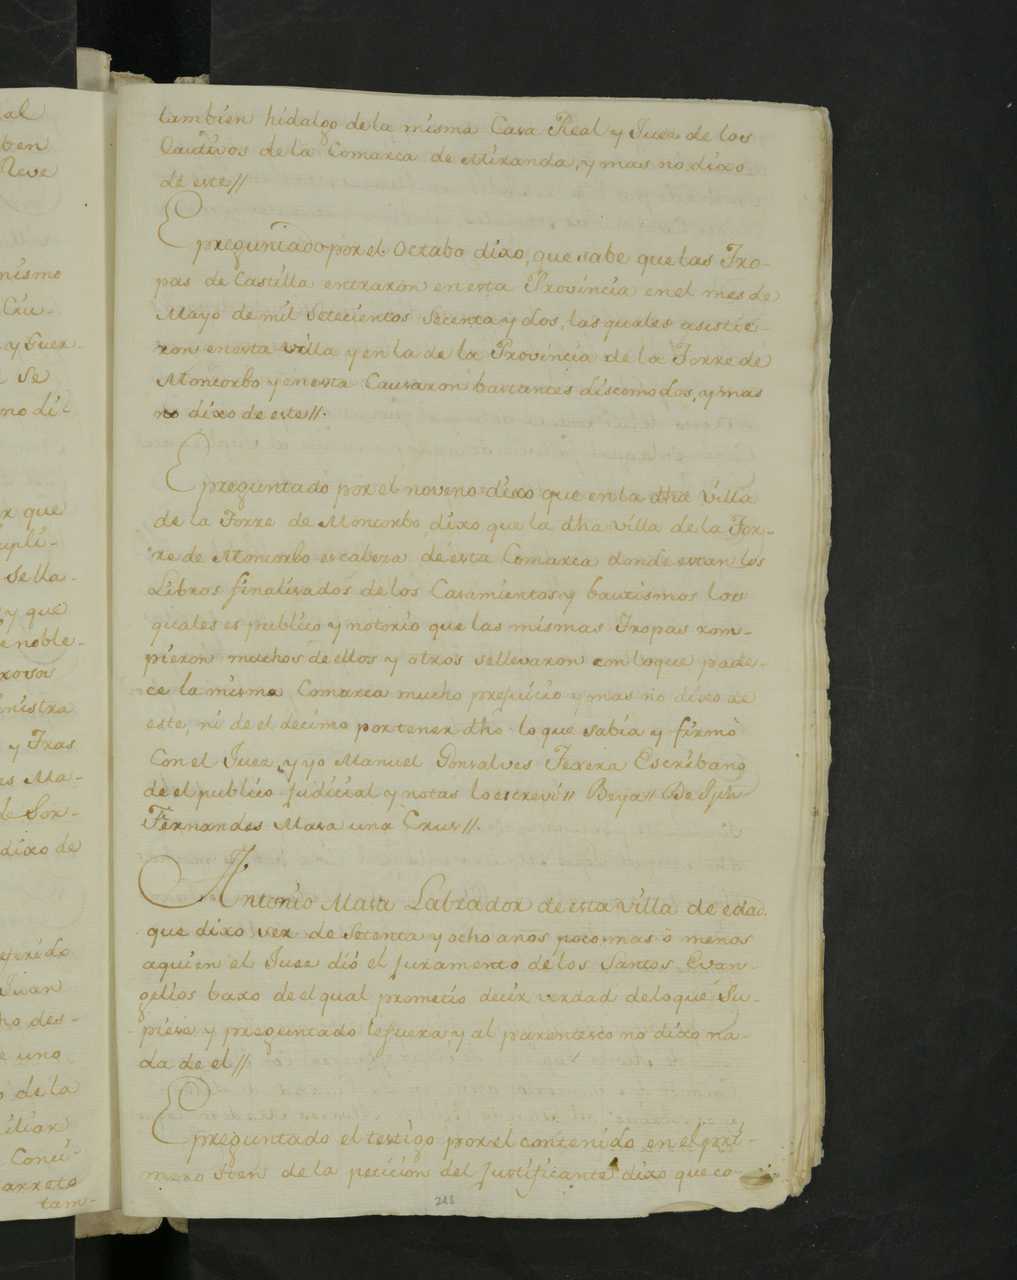 tambien hidalgo de la misma Casa Real y Juez de los
Cautivos de la Comarca de Miranda, y mas no dixo
de este //
E preguntado por el Octabo dixo, que sabe que las Tro-
pas de Castilla entraron en esta Provincia en el mes de
Mayo de mil Setecientos Secenta y dos, las quales asistie-
ron en esta villa y en la de la Provincia de la Torre de
Moncorbo y en esta Causaron bastantes discomodos, y mas
no dixo de este //.
E preguntado por el noveno dixo que en la dha Villa
de la Torre de Moncorbo, dixo que la dha villa de la Tor-
re de Moncorbo es cabeza de esta Comarca donde estan los
Libros finalisados de los Casamientos y bautismos los
quales es publico y notorio que las mismas Tropas rom-
pieron muchos de ellos y otros se llevaron con lo que pade-
ce la misma Comarca mucho prejuicio y mas no dixo de
este, ni de el decimo por tener dho lo que sabia y firmò
Con el Juez, y yo Manuel Gonsalves Texera Escribano
de el publico Judicial y notas lo escreví // Beya // De
Fernandes Masa una Crus //.
Antonio Masa Labrador de esta Villa de edad
que dixo ser de Setenta y ocho anos poco mas ò menos
aquien el Juez dió el Juramento de los Santos Evan-
gelios baxo de el qual prometio decir verdad de lo que Su-
piese y preguntado le fuera, y al parentesco no dixo na-
da de el //
E preguntado el testigo por el contenido en el pri-
mero Iten de la peticion del Justificante dixo que co-
213
al
ben
Neve
mismo
Cru-
y Guer-
Se
no di-
r que
upli-
Sella-
y que
e noble-
rosos
nistra
y Tras
es Ma-
de Sor-
dixo de
eferido
Juan
ho des-
e uno
o de la
iliar
Conci-
arreto
tam-